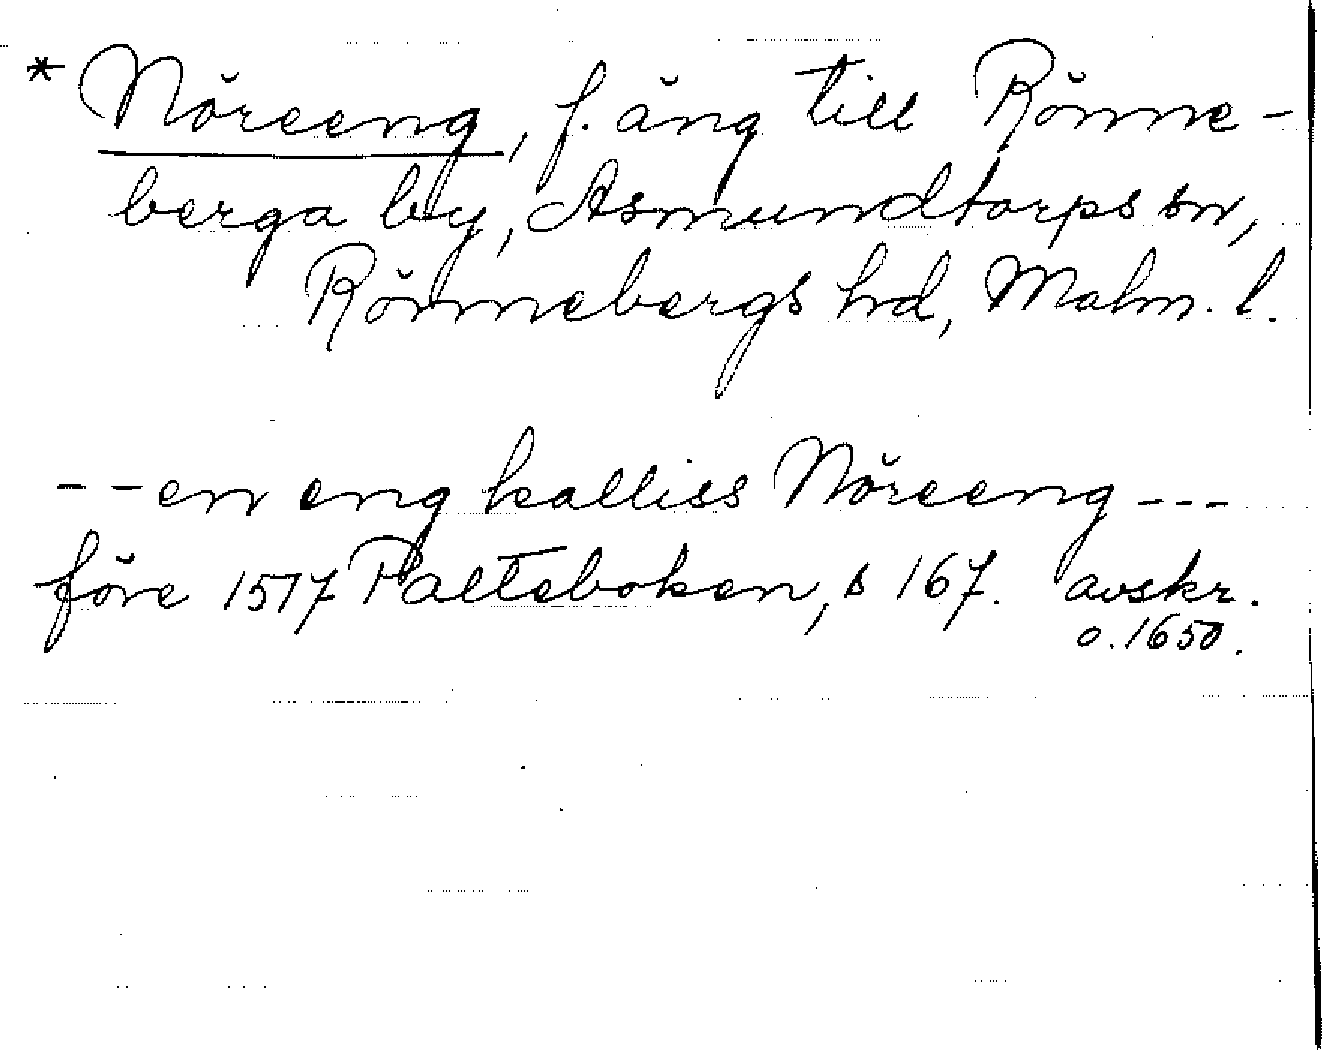 * Nöreeng, f. äng till Rönne-
berga by, Asmundtorps sn,
Rönnebergs hd, Malm. l.
-- en eng kalliss Nöreeng ---
före 1517 Palteboken, s 167. avskr.
o. 1650.